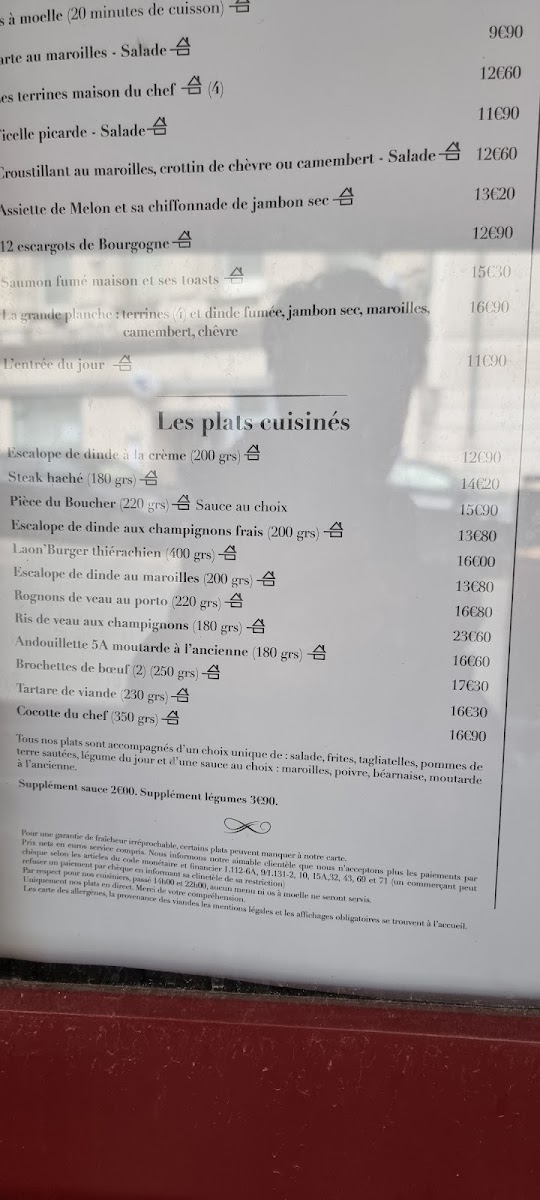 s à moelle (20 minutes de cuisson)
arte au maroilles - Salade 9€90
es terrines maison du chef (4) 12€60
icelle picarde - Salade 11€90
Croustillant au maroilles, crottin de chèvre ou camembert - Salade 12€60
Assiette de Melon et sa chiffonnade de jambon sec 13€20
12 escargots de Bourgogne 12€90
Saumon fumé maison et ses toasts 15€30
La grande planche : terrines (4) et dinde fumée, jambon sec, maroilles, 16€90
camembert, chèvre
L'entrée du jour 11€90
Les plats cuisinés
Escalope de dinde à la crème (200 grs) 12€90
Steak haché (180 grs) 14€20
Pièce du Boucher (220 grs) Sauce au choix 15€90
Escalope de dinde aux champignons frais (200 grs) 13€80
Laon'Burger thiérachien (400 grs) 16€00
Escalope de dinde au maroilles (200 grs) 13€80
Rognons de veau au porto (220 grs) 16€80
Ris de veau aux champignons (180 grs) 23€60
Andouillette 5A moutarde à l'ancienne (180 grs) 16€60
Brochettes de bœuf (2) (250 grs) 17€30
Tartare de viande (230 grs) 16€30
Cocotte du chef (350 grs) 16€90
Tous nos plats sont accompagnés d'un choix unique de : salade, frites, tagliatelles, pommes de
terre sautées, légume du jour et d'une sauce au choix : maroilles, poivre, béarnaise, moutarde
à l'ancienne.
Supplément sauce 2€00. Supplément légumes 3€90.
Pour une garantie de fraîcheur irréprochable, certains plats peuvent manquer à notre carte.
Prix nets en euros service compris. Nous informons notre aimable clientèle que nous n'acceptons plus les paiements par
chèque selon les articles du code monétaire et financier L112-6A, 9/1.131-2, 10, 15A,32, 43, 69 et 71 (un commerçant peut
refuser un paiement par chèque en informant sa clinetèle de sa restriction)
Par respect pour nos cuisiniers, passé 14h00 et 22h00, aucun menu ni os à moelle ne seront servis.
Uniquement nos plats en direct. Merci de votre compréhension.
Les carte des allergènes, la provenance des viandes les mentions légales et les affichages obligatoires se trouvent à l'accueil.